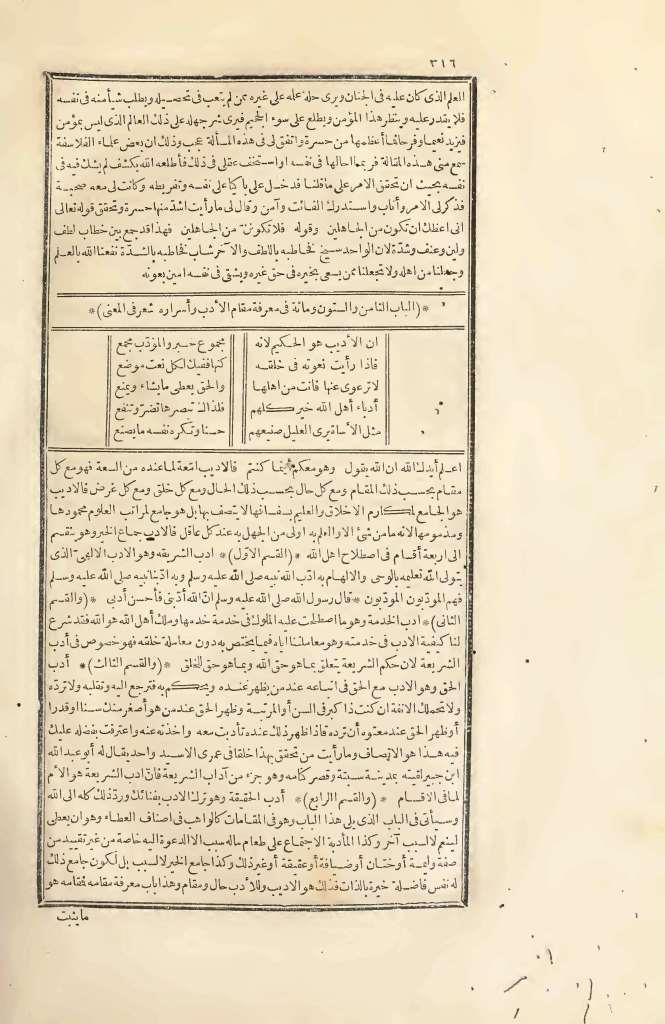 ٣١٦
العلم الذى كان عليه فى الجنان ويرى حلة علمه على غيره ممن لم يتعب فى تحصيله ويطلب شيأ منه فى نفسه
فلا يقدر عليه وينظر هذا المؤمن ويطلع على سوء الجحيم فيرى شر جهله على ذلك العالم الذى ليس بمؤمن
فيزيد نعيما وفرحا فأعظمها من حسرة واتفق لى فى هذه المسألة عجب وذلك ان بعض علماء الفلاسفة
سمع منى هذه المقالة فربما احالها فى نفسه او استخف عقلى فى ذلك فأطلعه الله بكشف لم يشك فيه فى
نفسه بحيث ان تحقق الامر على ما قلنا فدخل على باكيا على نفسه وتفريطه وكانت لى معه صحبة
فذكر لى الامر وأناب واستدرك الفائت وآمن وقال لى ما رأيت اشد منها حسرة وتحقق قوله تعالى
انى اعظك ان تكون من الجاهلين وقوله فلا تكونن من الجاهلين فهذا قد جمع بين خطاب لطف
ولين وعنف وشدة لان الواحد شيخ فخاطبه باللطف والآخر شاب فخاطبه بالشدة نفعنا الله بالعلم
وجعلنا من اهله ولا تجعلنا ممن يسعى بخيره فى حق غيره ويشقى فى نفسه امين بعونه
* (الباب الثامن والستون ومائة فى معرفة مقام الأدب وأسراره شعر فى المعنى) *
ان الأديب هو الحكيم لانه مجموع خير والمؤدب مجمع
فاذا رأيت نعوته فى خلقه كنها ففيك لكل نعت موضع
لا ترعوى عنها فانت من اهلها والحق يعطى ما يشاء ويمنع
أدباء أهل الله خير كلهم فلذا التبصرها تضر وتنفع
مثل الأساة يرى العليل صنيعهم حسنا وتكره نفسه ما يصنع
اعلم أيدك الله ان الله يقول وهو معكم أينما كنتم فالاديب امتعة لما عنده من السعة فهو مع كل
مقام بحسب ذلك المقام ومع كل حال بحسب ذلك الحال ومع كل خلق ومع كل غرض فالاديب
هو الجامع لمكارم الاخلاق والعليم بسفسافها لا يتصف بها بل هو جامع لمراتب العلوم محمودها
ومذمومها لانه ما من شئ الا والعلم به اولى من الجهل به عند كل عاقل فالادب جماع الخير وهو ينقسم
الى اربعة أقسام فى اصطلاح اهل الله * (القسم الاول) * ادب الشريعة وهو الادب الالهى الذى
يتولى الله تعليمه بالوحى والالهام به ادب الله نبيه صلى الله عليه وسلم وبه ادبنا نبيه صلى الله عليه وسلم
فهم المؤدبون المؤدبون * قال رسول الله صلى الله عليه وسلم ان الله أدبنى فأحسن أدبى * (والقسم
الثانى) * ادب الخدمة وهو ما اصطلحت عليه الملوك فى خدمة خدمها وملك أهل الله هو الله فقد شرع
لنا كيفية الادب فى خدمته وهو معاملتنا اياه فيما يختص به دون معاملة خلقه فهو خصوص فى أدب
الشريعة لان حكم الشريعة يتعلق بما هو حق الله وبما هو حق للخلق * (والقسم الثالث) * أدب
الحق وهو الادب مع الحق فى اتباعه عند من يظهر عنده ويحكم به فترجع اليه وتقبله ولا ترده
ولا تحملك الانفة ان كنت ذا كبر فى السن أو المرتبة وظهر الحق عند من هو أصغر منك سنا او قدرا
أو ظهر الحق عند معتوه أن ترده فاذا ظهر ذلك عنده تأدبت معه واخذته عنه واعترفت بفضله عليك
فيه هذا هو الانصاف وما رأيت من تحقق بهذا خلقا فى عمرى الا سيد واحد يقال له أبو عبد الله
ابن جبير لقيته بمدينة سبتة وقصر كتامه وهو جزء من آداب الشريعة فان ادب الشريعة هو الأم
لما فى الاقسام * (والقسم الرابع) * أدب الحقيقة وهو ترك الادب بفنائك ورد ذلك كله الى الله
وسيأتى فى الباب الذى يلى هذا الباب وهو فى المقامات كالواهب فى اصناف العطاء وهو ان يعطى
لينعم لا لسبب آخر وكذا المأدبة الاجتماع على طعام ماله سبب الا الدعوة اليه خاصة من غير تقييد من
صفة وليمة أو ختان أو ضيافة أو عقيقة أو غير ذلك وكذا جامع الخير لا لسبب بل لكون جامع ذلك
له نفس فاضلة خيرة بالذات فذلك هو الاديب وللأدب حال ومقام وهذا باب معرفة مقامه فمقامه هو
ما يثبت